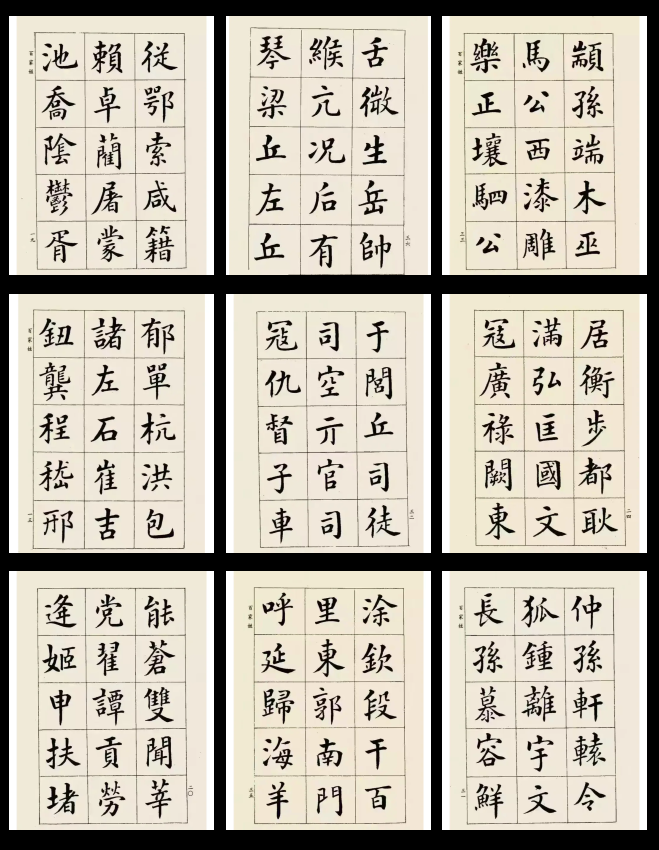 從鄂索咸籍
賴卓藺屠蒙
池喬陰鬱胥
百家姓
一九
舌微生岳帥
緱亢况后有
琴梁丘左丘
三六
顓孫端木巫
馬公西漆雕
樂正壤駟公
百家姓
三三
郁單杭洪包
諸左石崔吉
鈕龔程嵇邢
百家姓
一五
于閭丘司徒
司空亓官司
寇仇督子車
三二
居衡步都耿
滿弘匡國文
寇廣祿闕東
二四
能蒼雙聞莘
党翟譚貢勞
逄姬申扶堵
二〇
涂欽段干百
里東郭南門
呼延歸海羊
百家姓
三五
仲孫軒轅令
狐鍾離宇文
長孫慕容鮮
百家姓
三一